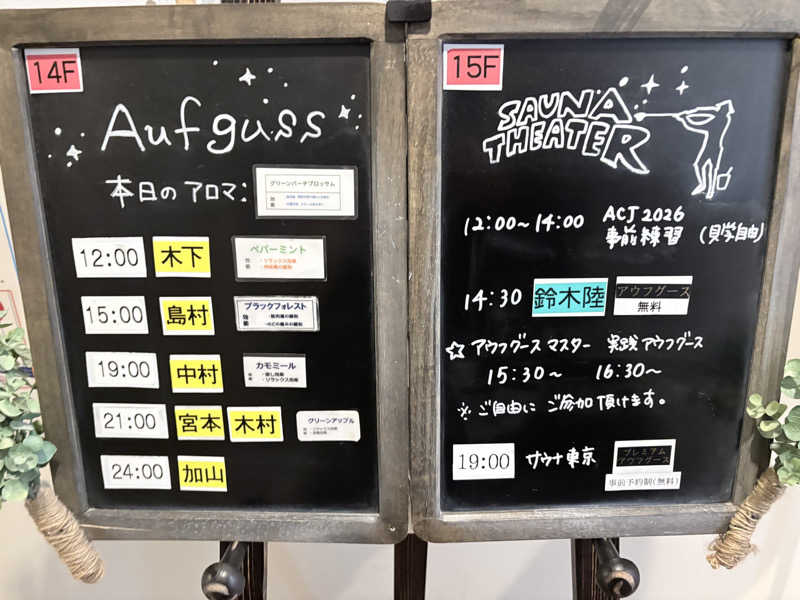 14F
Aufguss
本日のアロマ:
グリーンバーチブロッサム
12:00 木下 ペパーミント
・リラックス効果
15:00 島村 ブラックフォレスト
効能
19:00 中村 カモミール
・リラックス効果
21:00 宮本 木村 グリーンアップル
24:00 加山
15F
SAUNA
THEATER
12:00~14:00 ACJ 2026
事前練習 (見学自由)
14:30 鈴木陸 アウフグース
無料
☆ アウフグース マスター 実践 アウフグース
15:30~ 16:30~
※ご自由に ご参加頂けます。
19:00 サウナ東京 プレミアム
アウフグース
事前予約制(無料)